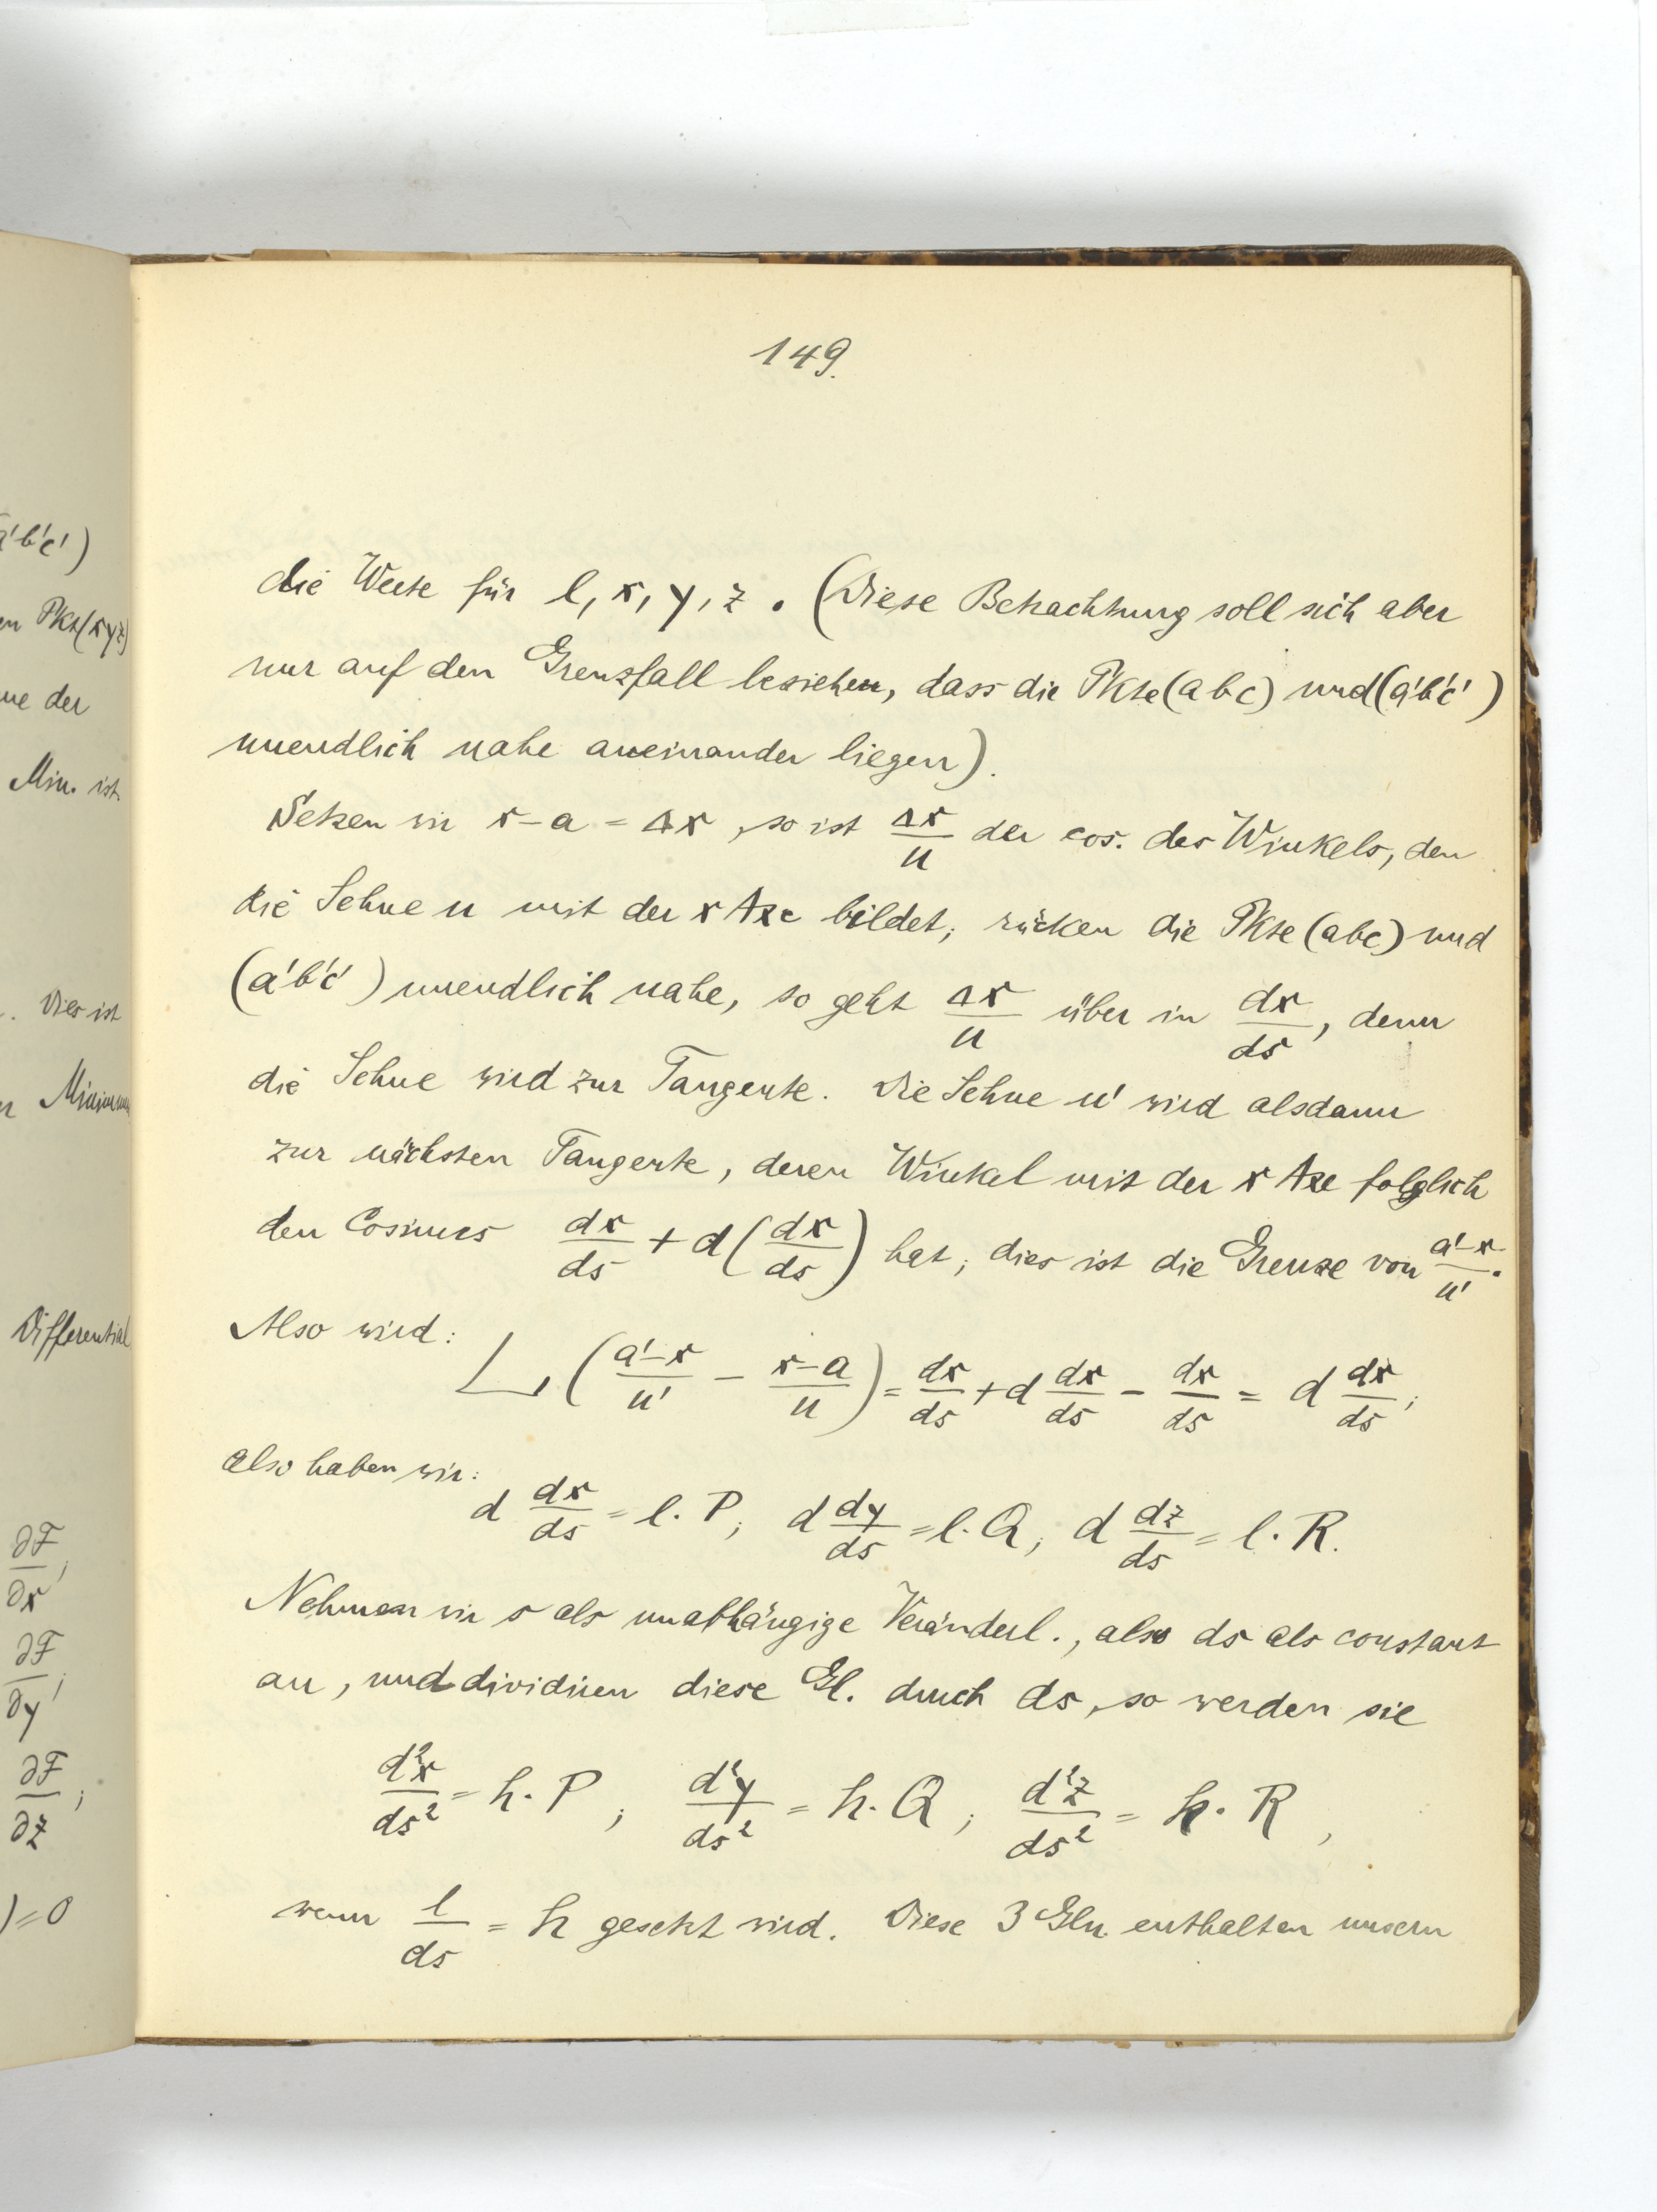 149.
die Werte für l, x, y, z. (Diese Betrachtung soll sich aber
nur auf den Grenzfall beziehen, dass die Pkte (a b c) und (a'b'c')
unendlich nahe aneinander liegen).
Setzen wir x - a = Δx, so ist Δx/u der cos. des Winkels, den
die Sehne u mit der x Axe bildet; rücken die Pkte (abc) und
(a'b'c') unendlich nahe, so geht Δx/u über in dx/ds, denn
die Sehne wird zur Tangente. Die Sehne u' wird alsdann
zur nächsten Tangente, deren Winkel mit der x Axe folglich
den Cosinus dx/ds + d(dx/ds) hat; dies ist die Grenze von a'-x/u'.
Also wird:
L (a'-x/u' - x-a/u) = dx/ds + d dx/ds - dx/ds = d dx/ds;
also haben wir:
d dx/ds = l. P; d dy/ds = l. Q; d dz/ds = l. R.
Nehmen wir s als unabhängige Veränderl., also ds als constant
an, und dividiren diese Gl. durch ds, so werden sie
d²x/ds² = h. P; d²y/ds² = h. Q; d²z/ds² = h. R,
wenn l/ds = h gesetzt wird. Diese 3 Gln. enthalten unsern
a'b'c')
Pkt (xyz)
der
Min. ist.
. Dies ist
Minimum
Differential
∂F/∂x;
∂F/∂y;
∂F/∂z;
) = 0